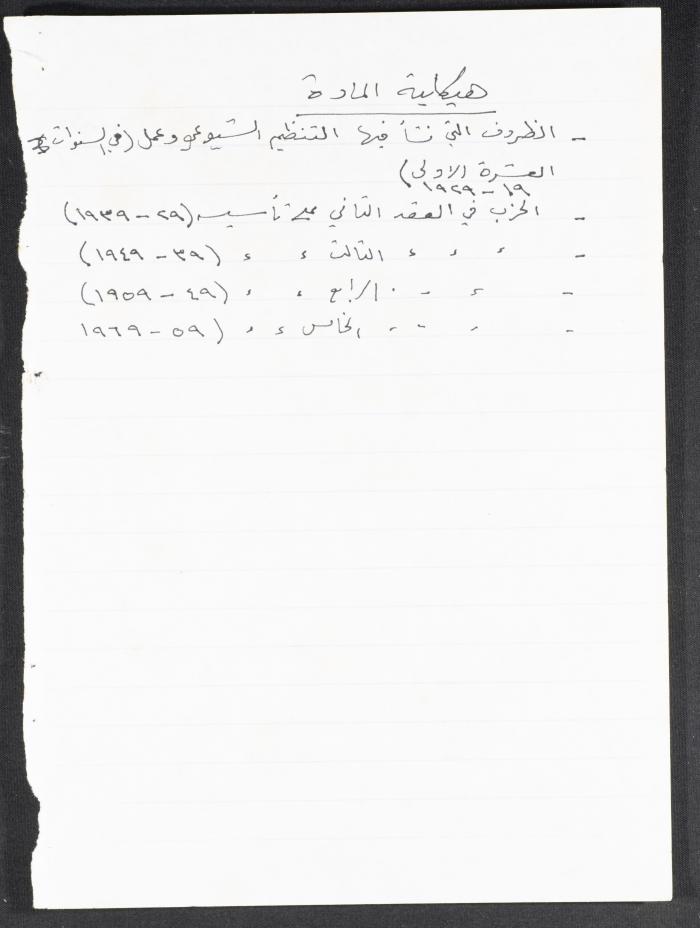 هيكلية المادة
- الظروف التي نشأ فيها التنظيم الشيوعي وعمل (في السنوات
العشرة الاولى)
١٩ - ١٩٢٩
- الحزب في العقد الثاني على تأسيسه (٢٩ - ١٩٣٩)
- ء ء ء الثالث ء ء (٣٩ - ١٩٤٩)
- ء - ٠ الرابع ء ء (٤٩ - ١٩٥٩)
- ء - ء الخامس ء ء (٥٩ - ١٩٦٩